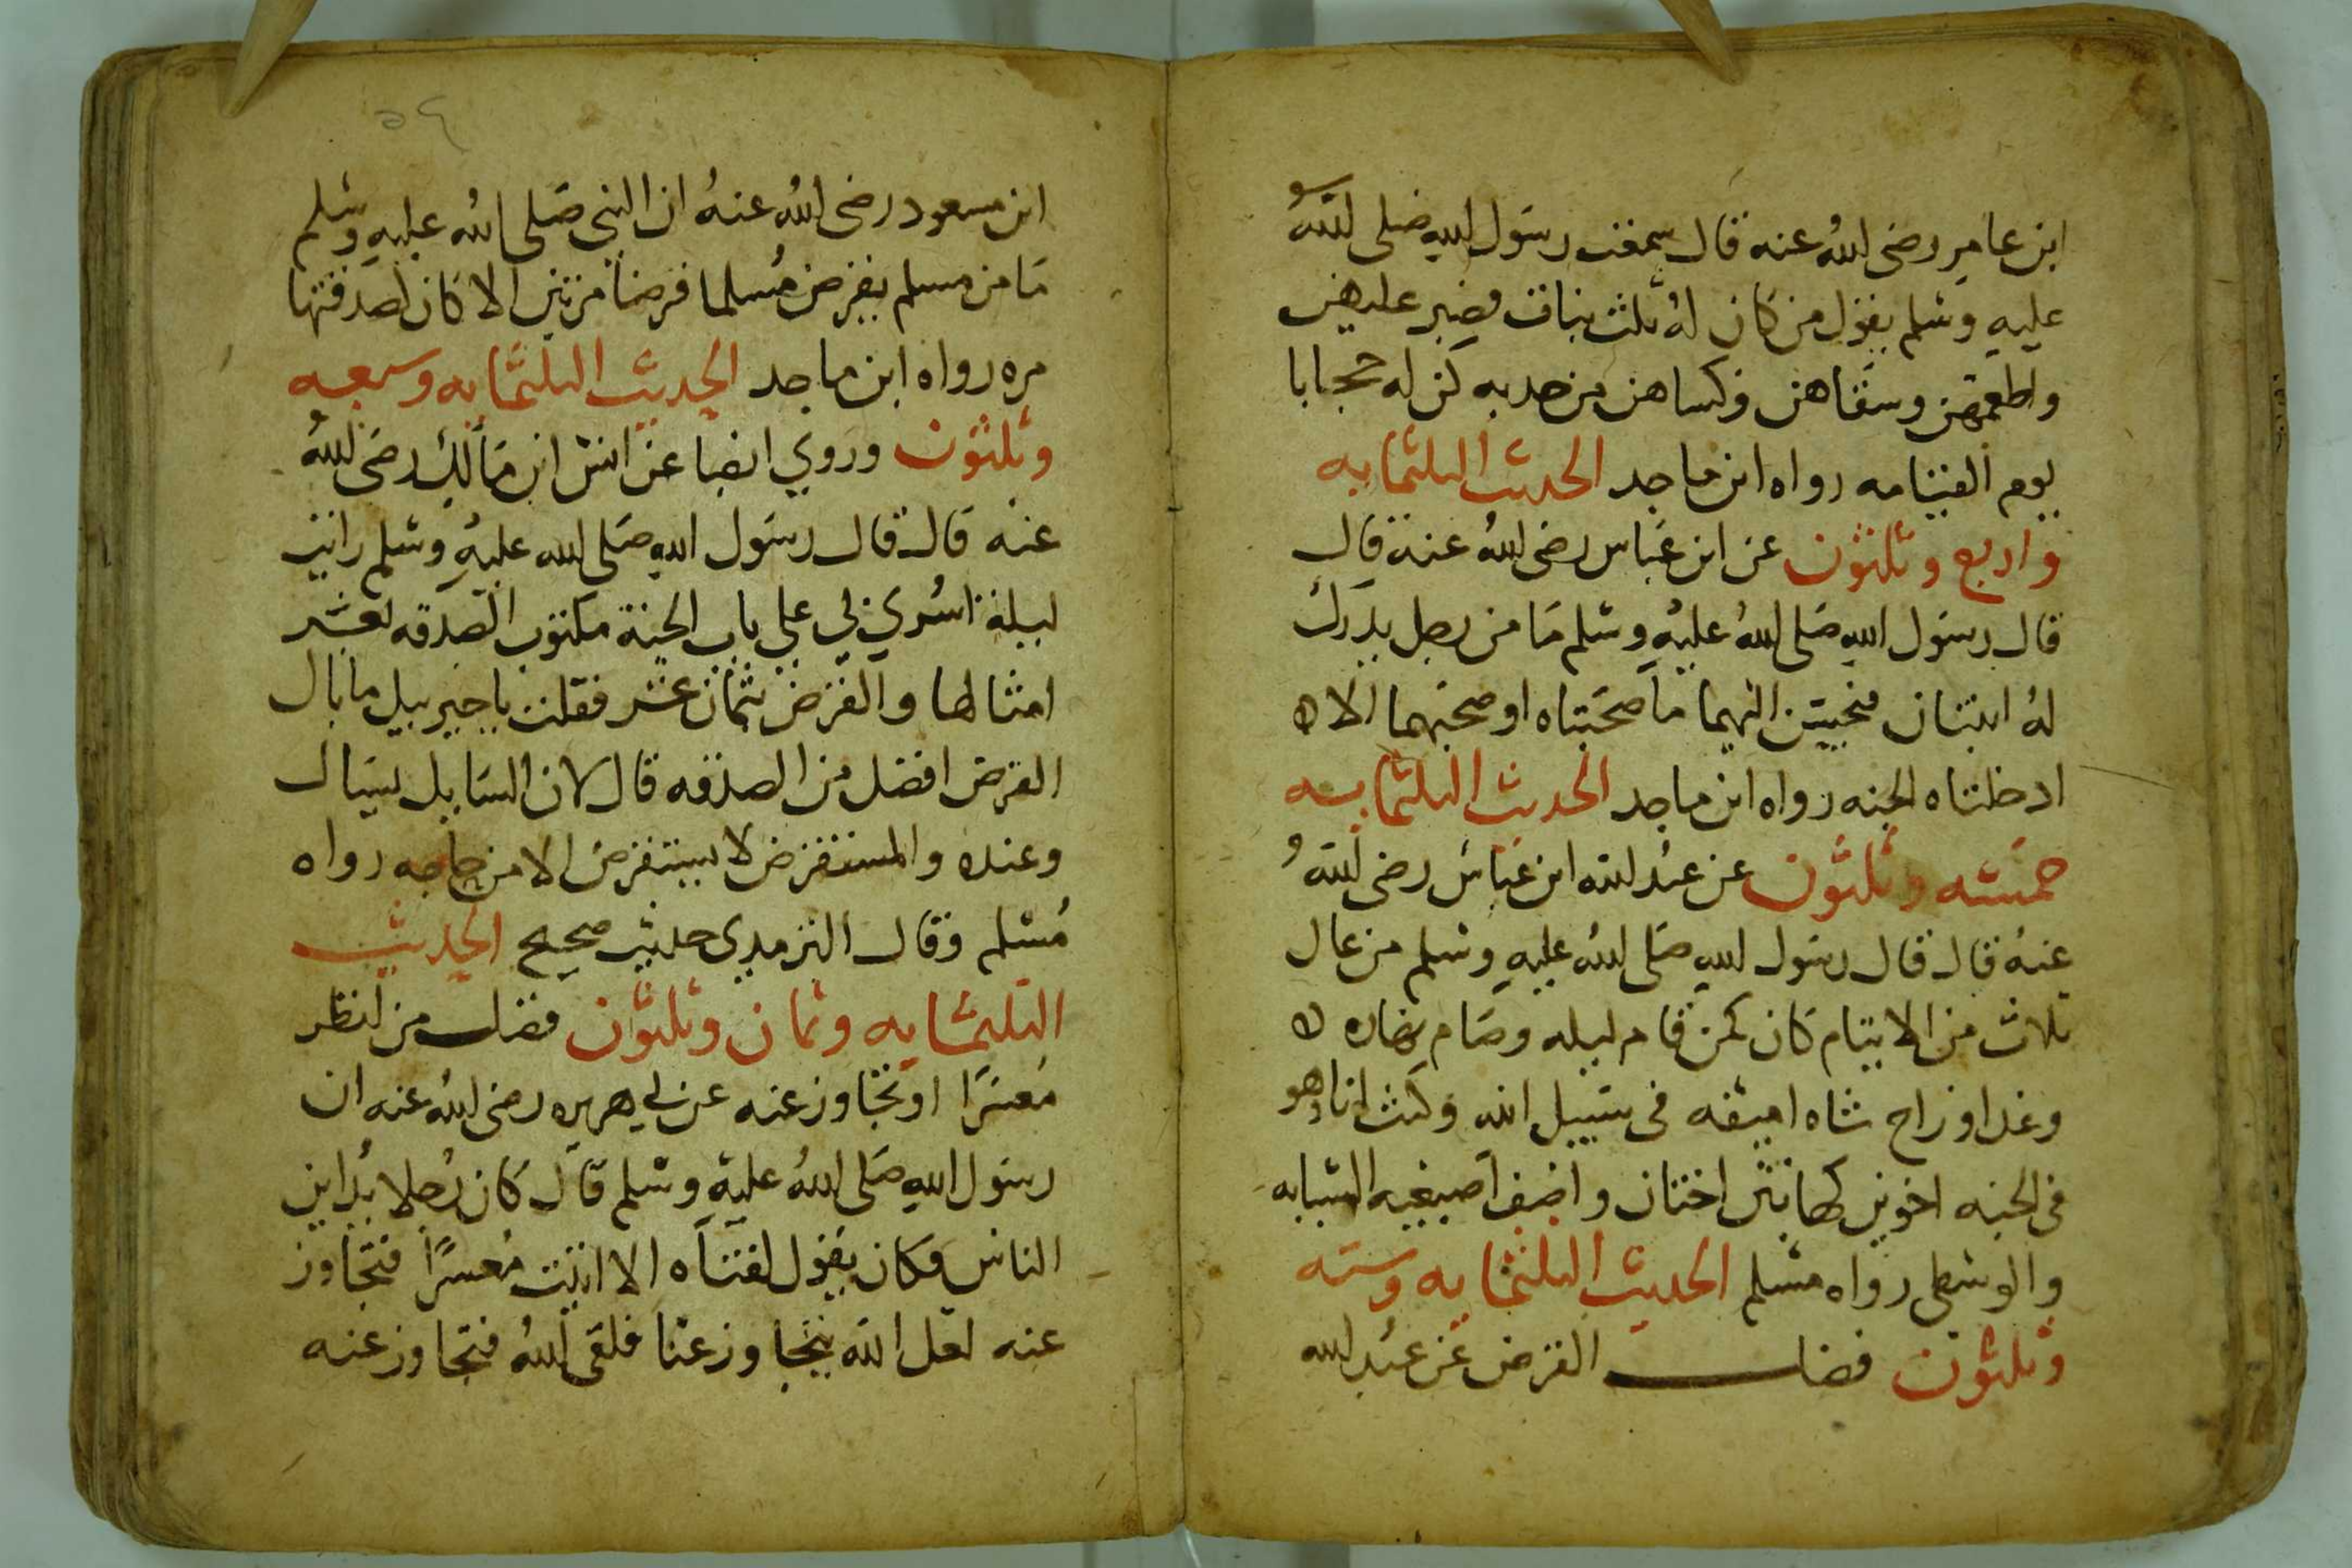 ابن عامر رضى الله عنه قال سمعت رسول الله صلى الله
عليه وسلم يقول من كان له ثلث بنات فصبر عليهن
واطعمهن وسقاهن وكساهن من جدبه كن له حجابا
يوم القيامه رواه ابن ماجد الحديث الثلثمايه
واربع وثلثون عن ابن عباس رضى الله عنه قال
قال رسول الله صلى الله عليه وسلم ما من رجل يدرك
له ابنتان فيحسن اليهما ما صحبتاه او صحبهما الا ه
ادخلتاه الجنه رواه ابن ماجد الحديث الثلثمايه
خمسه وثلثون عن عبد الله ابن عباس رضى الله
عنه قال قال رسول الله صلى الله عليه وسلم من عال
ثلاث من الايتام كان كمن قام ليله وصام نهاره ه
وغدا وراح شاه اسيفه فى سبيل الله وكنت انا وهو
فى الجنه اخوين كهاتين اختان واضف اصبعيه السبابه
والوسطى رواه مسلم الحديث الثلثمايه وسته
وثلثون فضل القرض عن عبد الله
٥٤
ابن مسعود رضى الله عنه ان النبى صلى الله عليه وسلم
ما من مسلم يقرض مسلما قرضا مرتين الا كان لصدقتها
مره رواه ابن ماجد الحديث الثلثمايه وسبعه
وثلثون وروي ايضا عن انس ابن مالك رضى الله
عنه قال قال رسول الله صلى الله عليه وسلم رايت
ليلة اسري بي على باب الجنة مكتوب الصدقه بعشر
امثالها والقرض بثمان عشر فقلت يا جبرييل ما بال
القرض افضل من الصدقه قال لان السايل يسال
وعنده والمستقرض لا يستقرض الا من حاجه رواه
مسلم وقال الترمدى حديث صحيح الحديث
الثلثمايه وثمان وثلثون فضل من انظر
معسرا او تجاوز عنه عن ابي هريره رضى الله عنه ان
رسول الله صلى الله عليه وسلم قال كان رجلا يداين
الناس فكان يقول لفتاه الا اتيت معسرا فتجاوز
عنه لعل الله يتجاوز عنا فلقى الله فتجاوز عنه